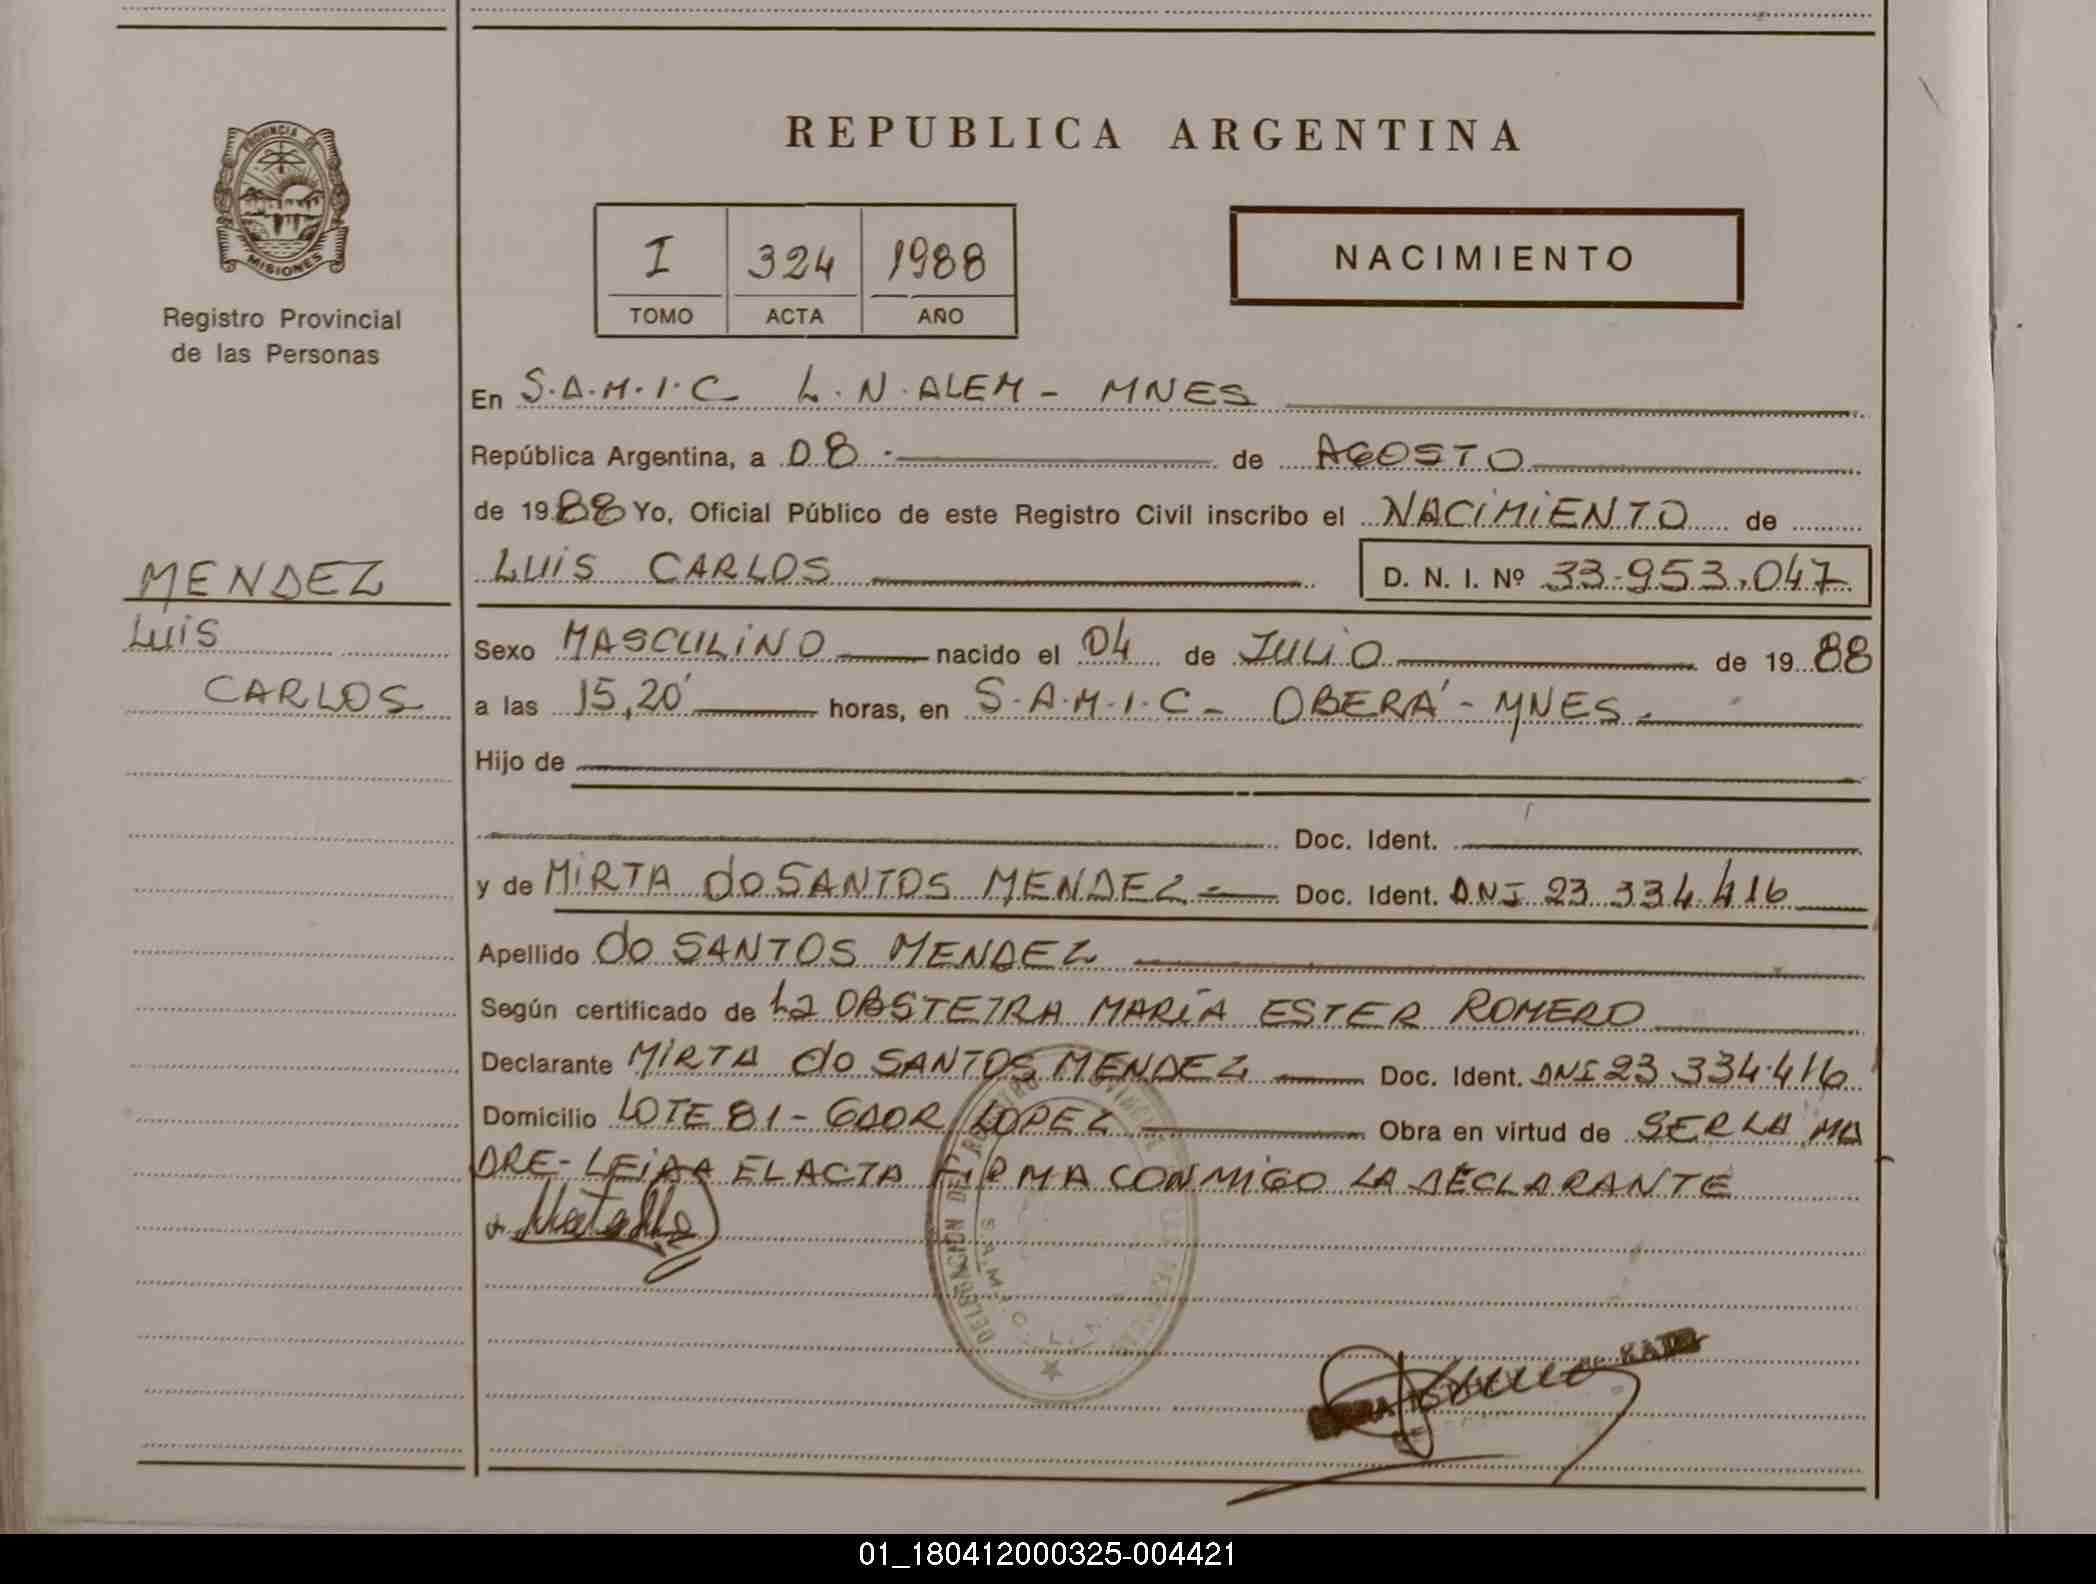 PROVINCIA DE
MISIONES
Registro Provincial
de las Personas
MENDEZ
LUIS
CARLOS
REPUBLICA ARGENTINA
I 324 1988
TOMO ACTA AÑO
NACIMIENTO
En S.A.M.I.C L.N.ALEM - MNES
República Argentina, a 08 - de AGOSTO
de 1988 Yo, Oficial Público de este Registro Civil inscribo el NACIMIENTO de
LUIS CARLOS D. N. I. Nº 33.953.047
Sexo MASCULINO nacido el 04 de JULIO de 1988
a las 15,20' horas, en S.A.M.I.C - OBERÁ - MNES -
Hijo de
Doc. Ident.
y de MIRTA do SANTOS MENDEZ - Doc. Ident. DNI 23.334.416
Apellido do SANTOS MENDEZ
Según certificado de La OBSTETRA MARÍA ESTER ROMERO
Declarante MIRTA do SANTOS MENDEZ Doc. Ident. DNI 23.334.416
Domicilio LOTE 81 - GDOR LOPEZ Obra en virtud de SER LA MA
DRE - LEIDA EL ACTA FIRMA CONMIGO LA DECLARANTE
DELEGACION DEL REGISTRO PROVINCIAL
01_180412000325-004421